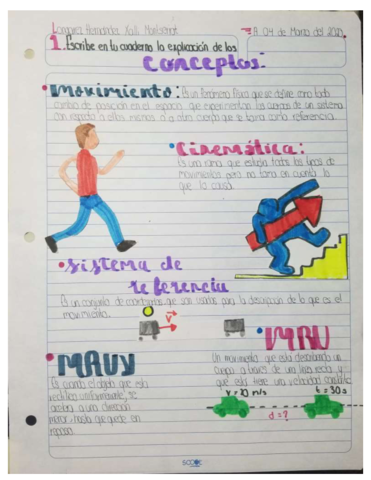 Longoria Hernandez Xall Montserrat
A 04 de Marzo del 2021
1. Escribe en tu cuaderno la explicación de los
Conceptos:
Movimiento: Es un fenómeno físico que se define como todo
cambio de posición en el espacio que experimentan los cuerpos de un sistema
con respecto a ellos mismos o a otro cuerpo que se toma como referencia.
Cinemática:
Es una rama que estudia todos los tipos de
movimientos pero no toma en cuenta lo
que lo causa.
Sistema de
referencia
Es un conjunto de coordenadas que son usadas para la descripción de lo que es el
movimiento.
V
MRU
Un movimiento que está describiendo un
cuerpo a través de una línea recta y
que esta tiene una velocidad constante
V=23 m/s
t=30s
d=?
MRUV
Es cuando el objeto que esta
rectilíneo uniformemente, se
a una dirección
hasta que quede en
reposo.